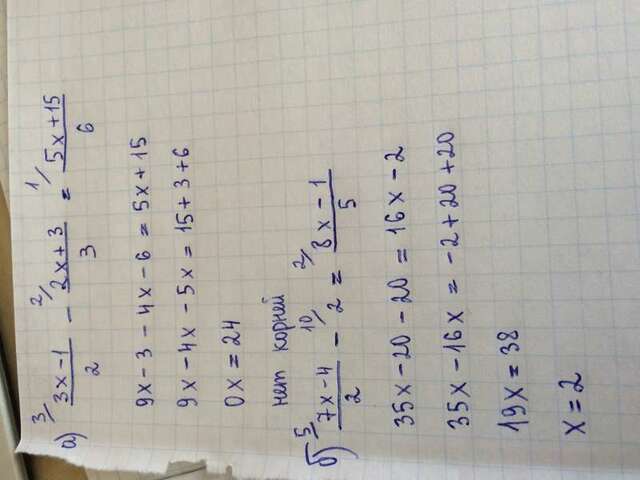 а) ³/ 3x-1/2 - ²/ 2x+3/3 = ¹/ 5x+15/6
9x-3-4x-6=5x+15
9x-4x-5x=15+3+6
0x=24
нет корней
б) ⁵/ 7x-4/2 - ¹⁰/ 2 = ²/ 8x-1/5
35x-20-20=16x-2
35x-16x=-2+20+20
19x=38
x=2